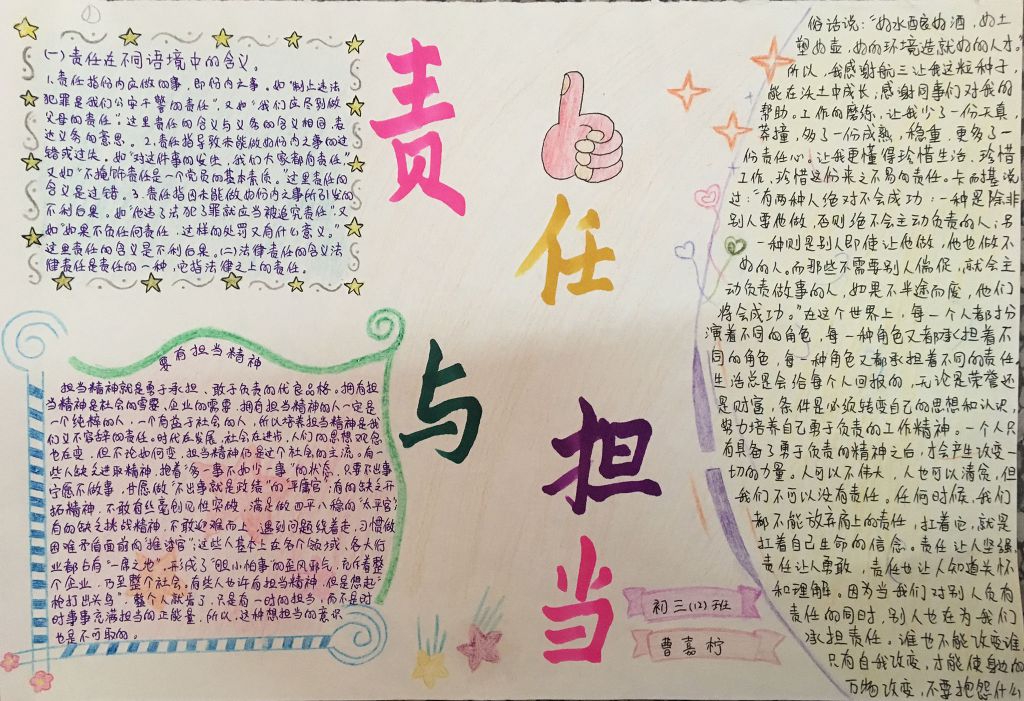 责任与担当
(一)责任在不同语境中的含义。
1.责任指份内应做的事,即份内之事。如"制止违法
犯罪是我们公安干警的责任",又如"我们应尽到做
父母的责任"。这里责任的含义与义务的含义相同,表
达义务的意思。2.责任指导致未能做好份内之事的过
错或过失。如"对这件事的发生,我们大家都有责任。"
又如"不掩饰责任是一个党员的基本素质。"这里责任的
含义是过错。3.责任指因未能做好份内之事所引发的
不利后果。如"他违了法犯了罪就应当被追究责任",又
如"如果不负任何责任,这样的处罚又有什么意义。"
这里责任的含义是不利后果。(二)法律责任的含义法
律责任是责任的一种,它指法律之上的责任。
要有担当精神
担当精神就是勇于承担、敢于负责的优良品格。拥有担
当精神是社会的需要、企业的需要,拥有担当精神的人一定是
一个纯粹的人,一个有益于社会的人,所以培养担当精神是我
们义不容辞的责任。时代在发展,社会在进步,人们的思想观念
也在变,但不论如何变,担当精神仍是这个社会的主流。有一
些人缺乏进取精神,抱着"多一事不如少一事"的状态,只要不出事
宁愿不做事,甘愿做"不出事就是政绩"的"平庸官";有的缺乏开
拓精神,不敢有丝毫创见但突破,满足做四平八稳的"太平官";
有的缺乏挑战精神,不敢迎难而上,遇到问题绕着走,习惯做
困难矛盾面前的"推诿官";这些人基本上在各个领域、各大行
业都占有"一席之地",形成了"胆小怕事"的歪风邪气,充斥着整
个企业,乃至整个社会。有些人也许有担当精神,但是想起"
枪打出头鸟",整个人就蔫了,只是有一时的担当,而不是时
时事事充满担当的正能量,所以,这种想担当的意识
也是不可取的。
俗话说:"好水酿好酒,好土
塑好壶,好的环境造就好的人才。"
所以,我感谢航三让我这粒种子,
能在沃土中成长;感谢同事们对我的
帮助。工作的磨练,让我少了一份天真,
莽撞,多了一份成熟,稳重,更多了一
份责任心,让我更懂得珍惜生活,珍惜
工作,珍惜这份来之不易的责任。卡而基说
过:"有两种人绝对不会成功:一种是除非
别人要他做,否则绝不会主动负责的人;另
一种则是别人即使让他做,他也做不
好的人。而那些不需要别人催促,就会主
动负责做事的人,如果不半途而废,他们
将会成功。"在这个世界上,每一个人都扮
演着不同的角色,每一种角色又都承担着不
同的角色,每一种角色又都承担着不同的责任
生活总是会给每个人回报的,无论是荣誉还
是财富,条件是必须转变自己的思想和认识,
努力培养自己勇于负责的工作精神。一个人只
有具备了勇于负责的精神之后,才会产生改变一
切的力量。人可以不伟大,人也可以清贫,但
我们不可以没有责任。任何时候,我们
都不能放弃肩上的责任,扛着它,就是
扛着自己生命的信念。责任让人坚强
责任让人勇敢,责任也让人知道关怀
和理解。因为当我们对别人负有
责任的同时,别人也在为我们
承担责任。谁也不能改变谁,
只有自我改变,才能使身边的
万物改变,不要抱怨什么
初三(12)班
曹嘉柠